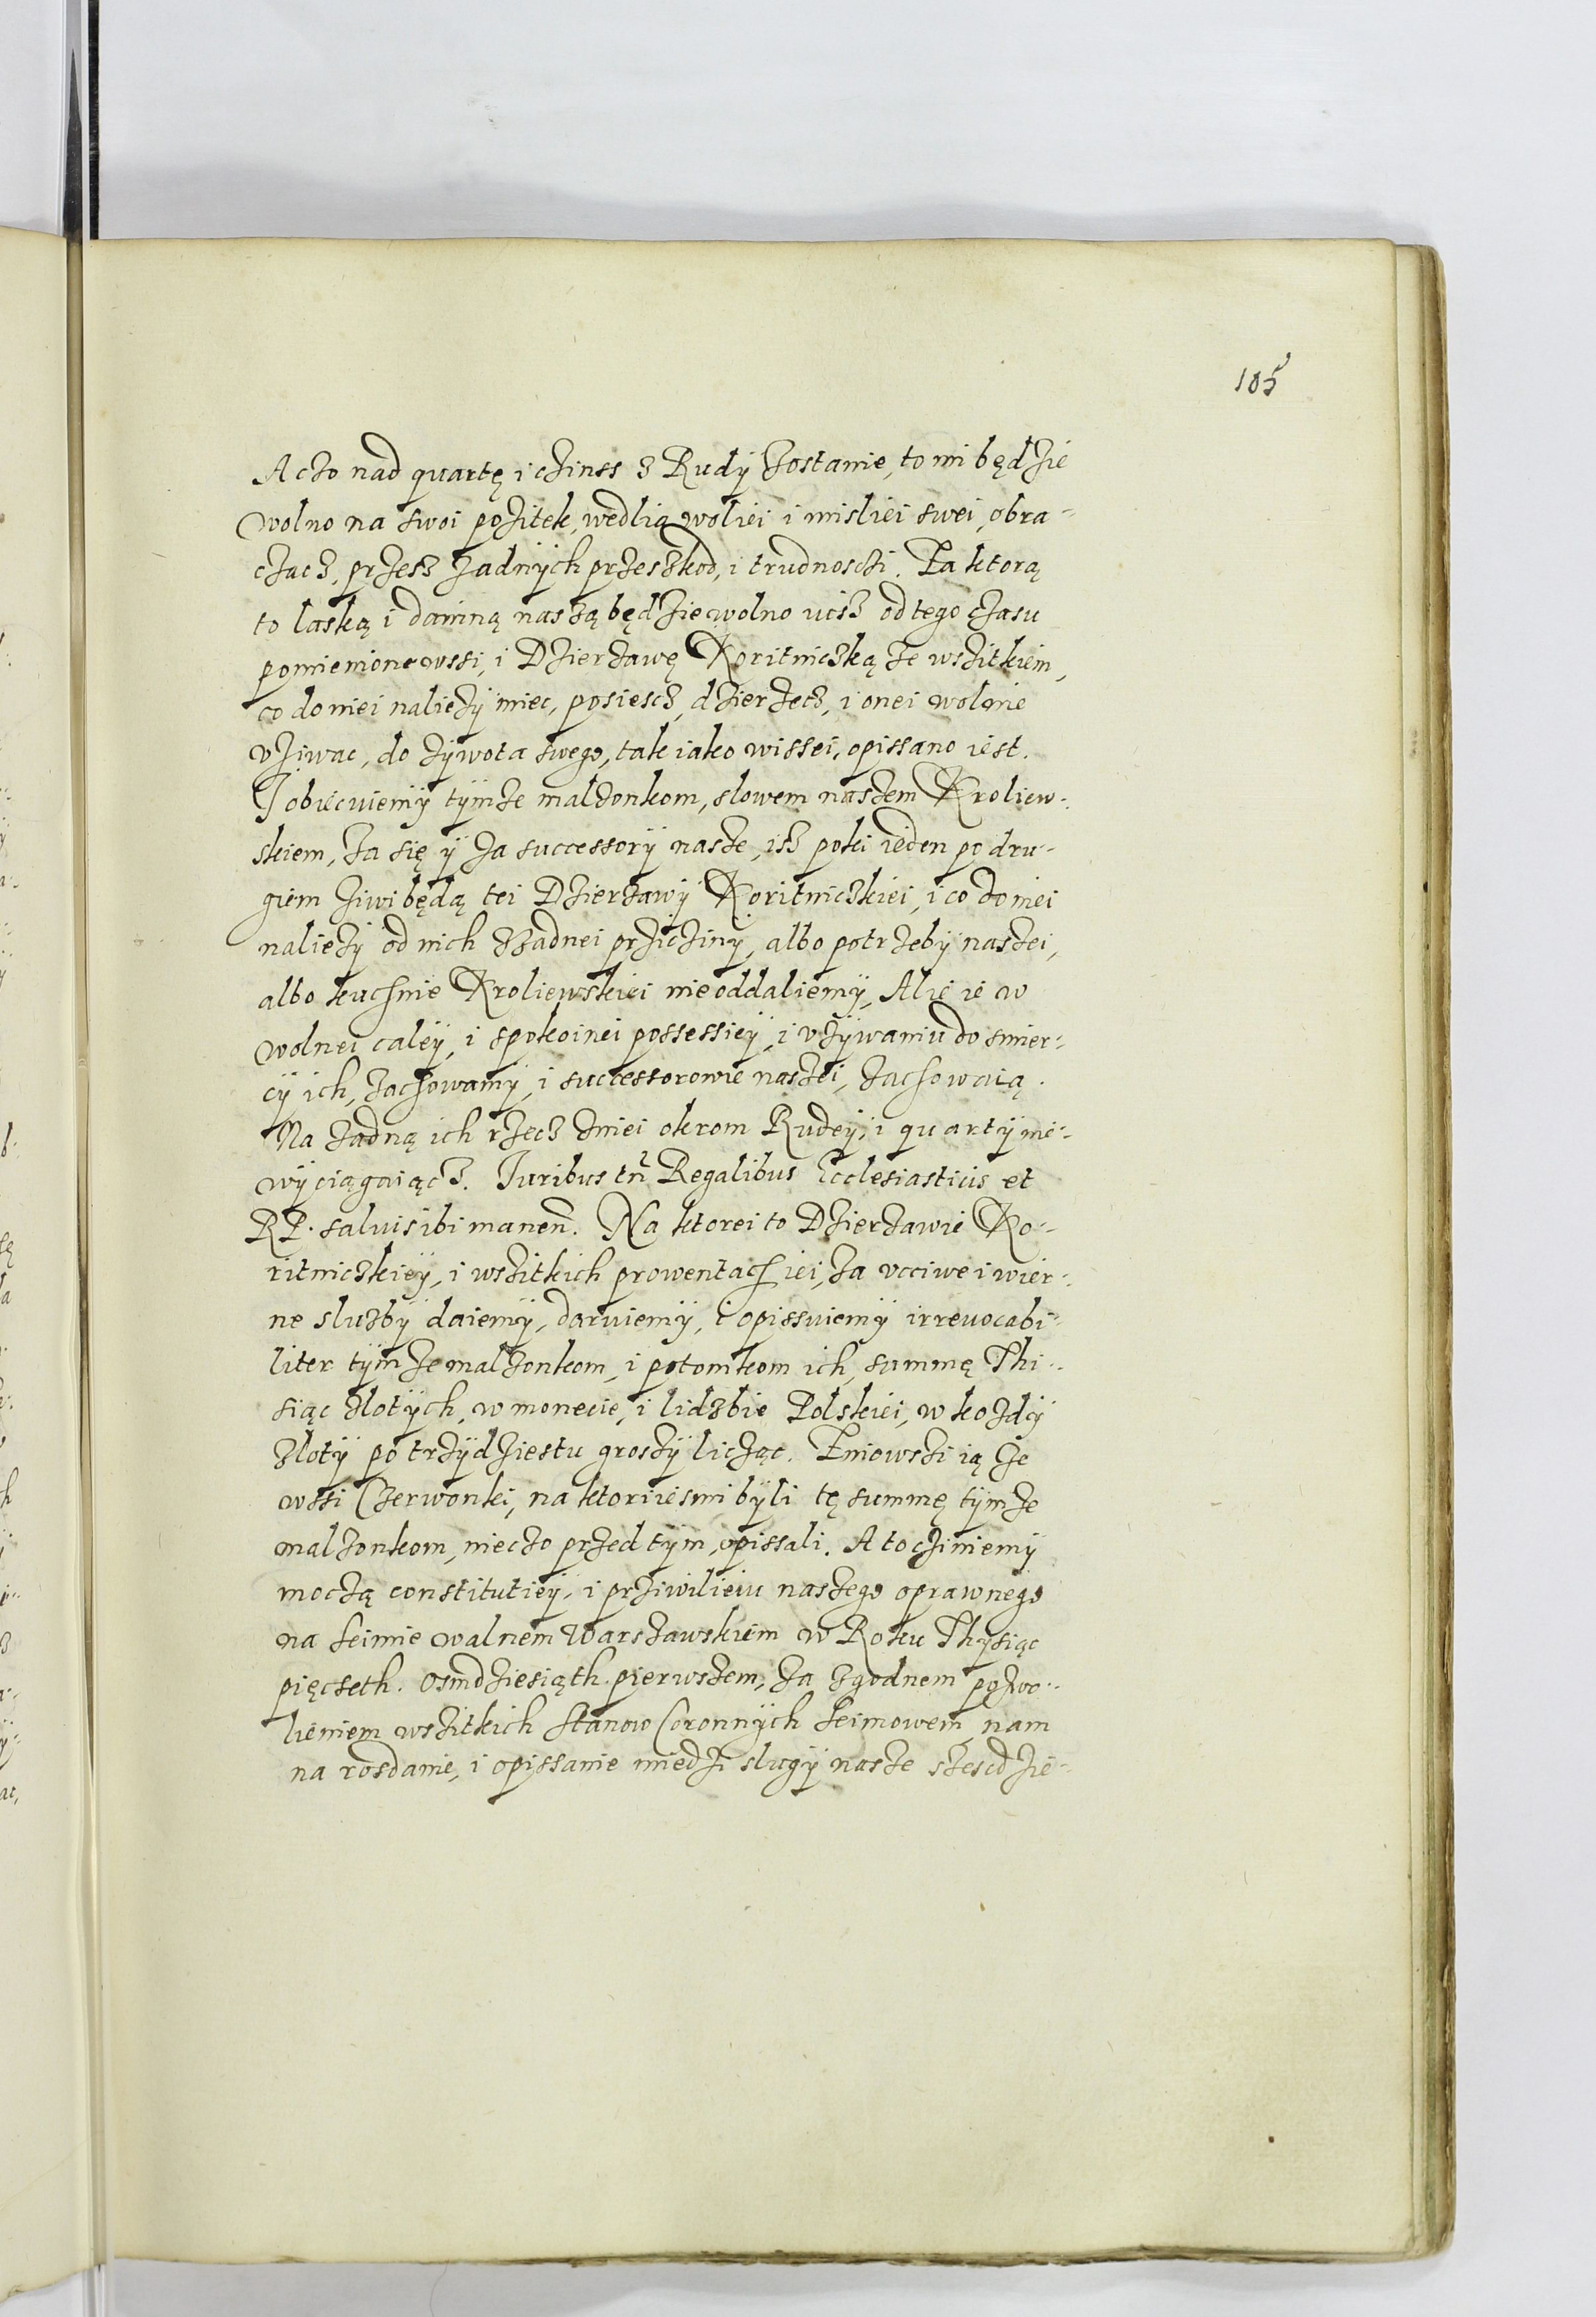 105
A czo nad quartę i czinss z Rudÿ zostanie, to mi będzie
wolno na swoi pozitek, wedlią woliei i misliei swei, obra-
czacz, przesz zadnÿch przeszkod, i trudnosczi. Za ktorą
to laską i daniną naszą będzie wolno
pomienione wssi, i Dzierzawę Koritniczką ze wszitkiem,
co do niei naliezÿ miec, posiescz, dzierzecz, i onei wolnie
vziwac, do zÿwota swego, tak iako wissei, opissano iest.
I obiecuiemÿ tÿmze malzonkom, slowem naszem Kroliew-
skiem, za się ÿ za successorÿ nasze, isz poki ieden po dru-
giem ziwi będą tei Dzierzawÿ Koritniczkiei, i co do niei
naliezÿ od nich zzadnei prziczinÿ, albo potrzebÿ naszei,
albo kuchnie Kroliewskiei nie oddaliemÿ, Alie ie w
wolnei calëÿ, i spokoinei possessieÿ, i vzÿwaniu do smier-
cÿ ich, zachowamÿ, i successorowie naszei, zachowaią.
Na zadną ich rzecz zniei okrom Rudeÿ, i quartÿ nie-
wÿciągaiącz. Iuribus tñ Regalibus Ecclesiasticis et
RP. saluis ibi manen. Na ktorei to Dzierzawie Ko-
ritniczkieÿ, i wszitkich prowentach iei, za vcciwe i wier-
ne sluzbÿ daiemÿ, daruiemÿ, i opissuiemÿ irreuocabi-
liter tÿmze malzonkom, i potomkom ich, summę Thi-
siąc zlotÿch, w monecie, i lidzbie Polskiei, w kozdÿ
zlotÿ po trzÿdziestu groszÿ licząc. Zniowszi ią ze
wssi Czerwonki, na ktoriiesmi bÿli tę summę tÿmze
malzonkom, nieczo przed tÿm, opissali. A to cziniemÿ
moczą constitutieÿ, i prziwilieiu naszego oprawnego
na seimie walnem Warszawskiem w Roku Thÿsiąc
pięcseth. osmdziesiąth. pierwszem, za zgodnem pozwo-
lieniem wszitkich stanow Coronnÿch seimowem, nam
na rosdanie, i opissanie miedzi slugÿ nasze szescdzie-